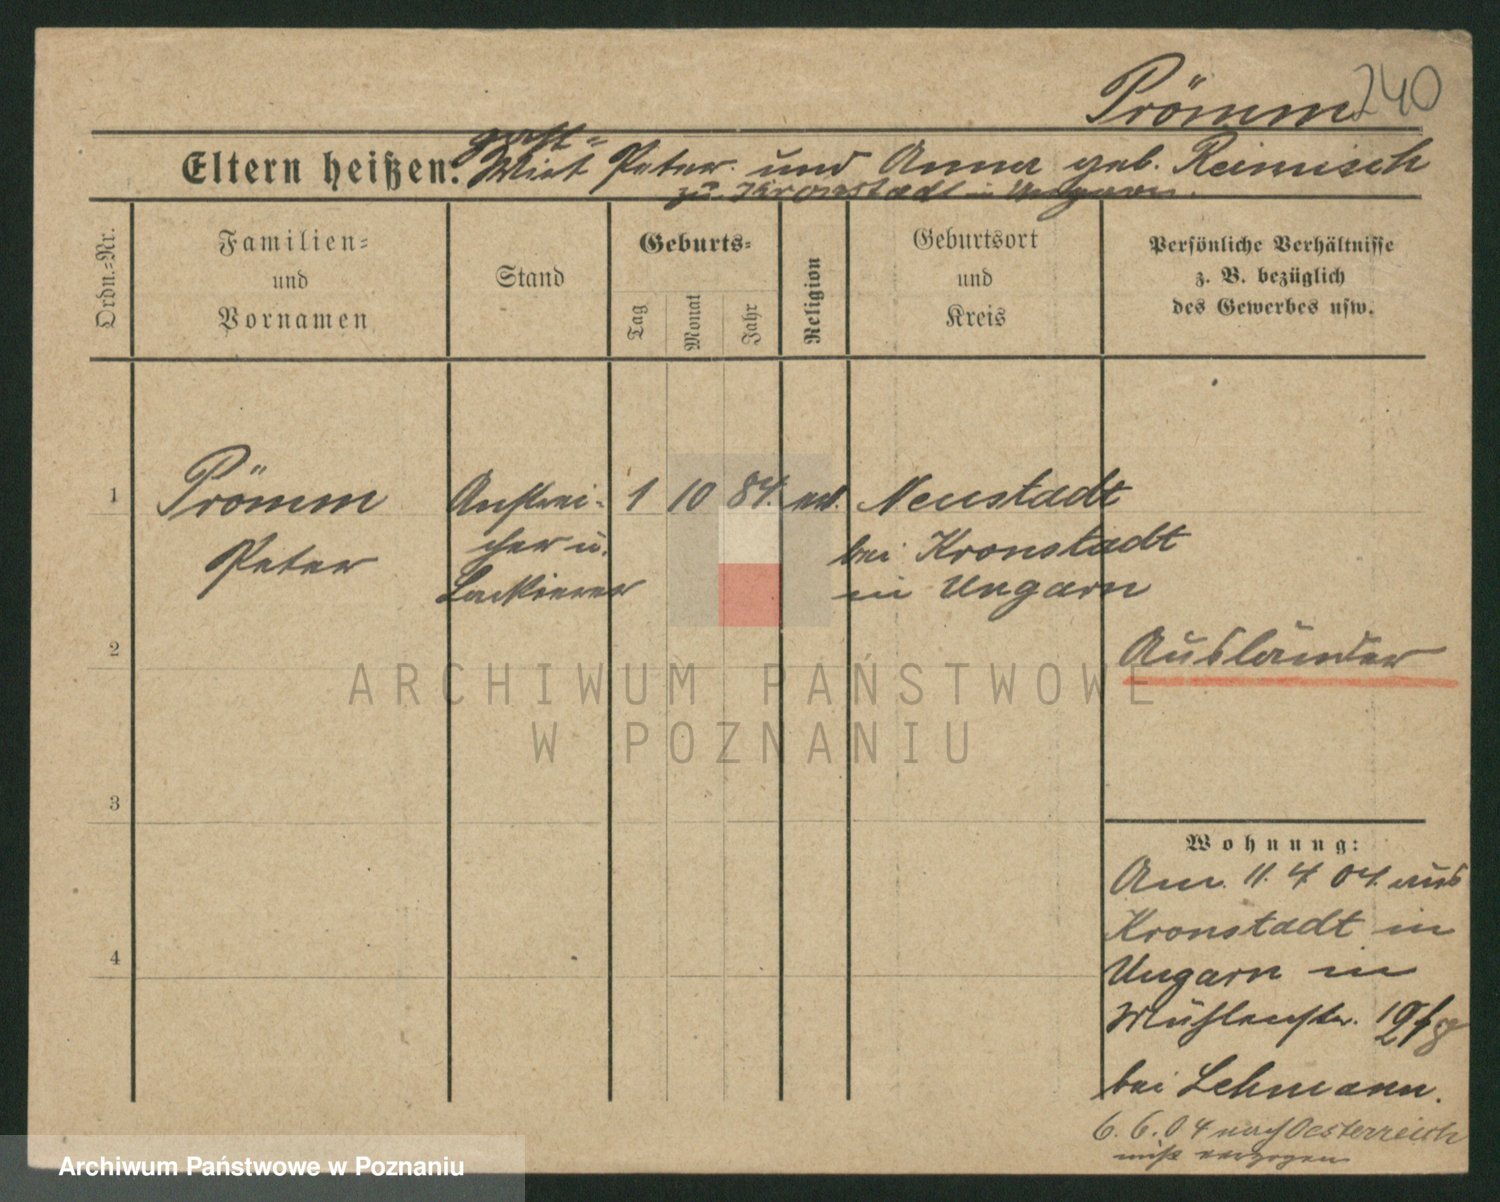 Prömm 240
Eltern heißen: Gast-
Wirt Peter und Anna geb. Reimisch
zu Kronstadt in Ungarn.
Ordn.-Nr.
Familien-
und
Vornamen
Stand
Geburts-
Tag
Monat
Jahr
Religion
Geburtsort
und
Kreis
Persönliche Verhältnisse
z. B. bezüglich
des Gewerbes usw.
1
Prömm
Peter
Anstrei-
cher u.
Lackierer
1 10 84.
Neustadt
bei Kronstadt
in Ungarn
2
Ausländer
ARCHIWUM PAŃSTWOWE
W POZNANIU
3
4
Wohnung:
Am 11. 4 04. aus
Kronstadt in
Ungarn in
Mühlenstr.
bei Lehmann.
6. 6. 04 nach Oesterreich
verzogen
Archiwum Państwowe w Poznaniu